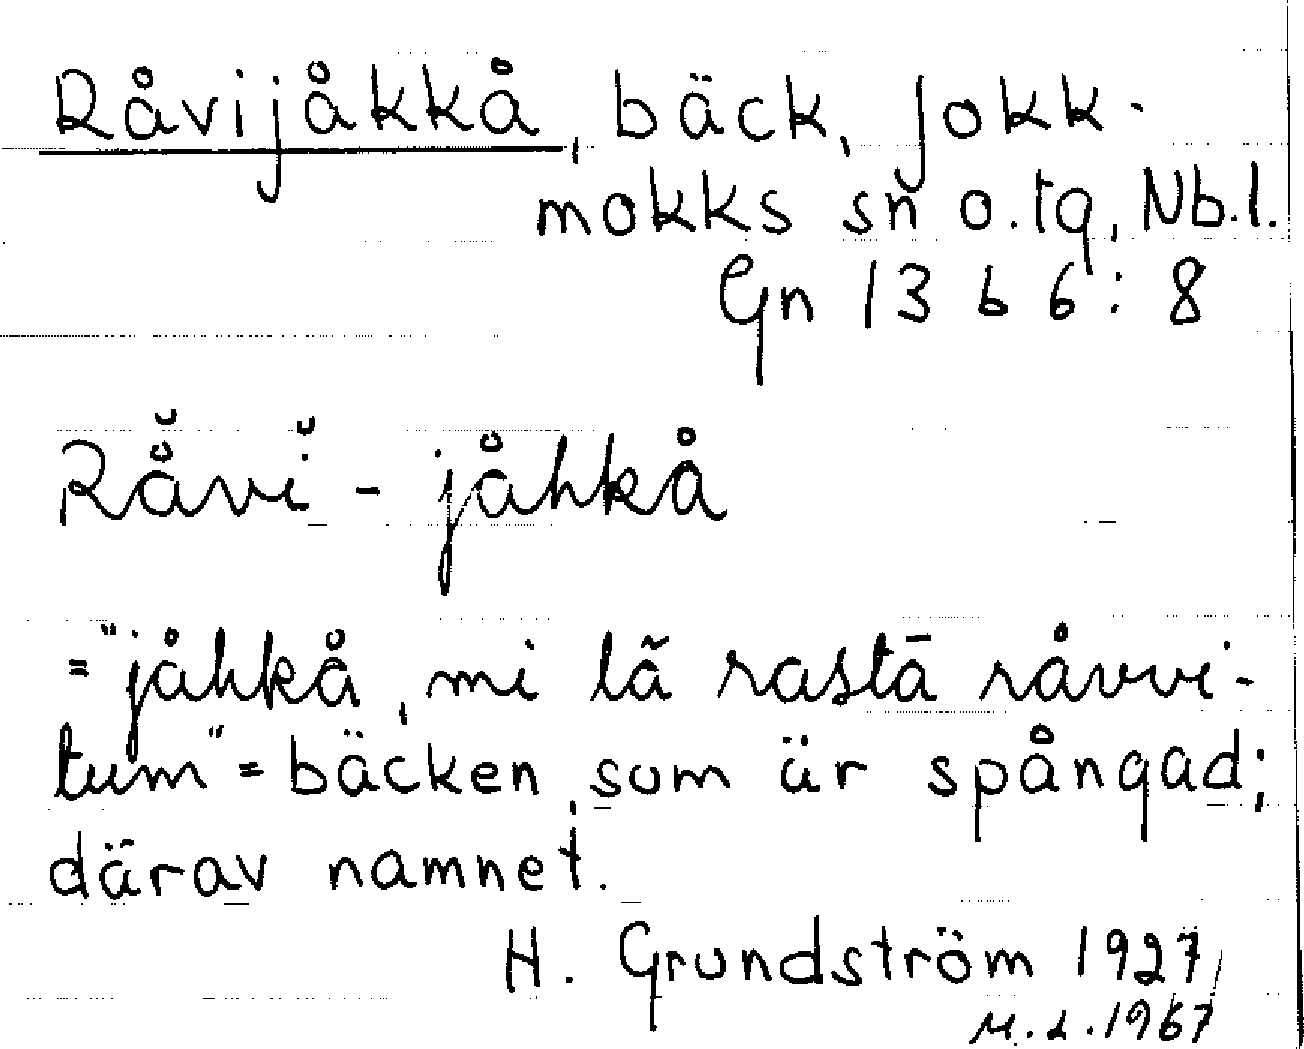 Råvijåkkå, bäck, Jokk-
mokks sn o. tg, Nb.l.
Gn 13 b 6:8
Rå̆vĭ - jåhkå
="jåhkå, mi lã rastā råvvi-
tum" = bäcken, som är spångad;
därav namnet.
H. Grundström 1927
M.L.1967